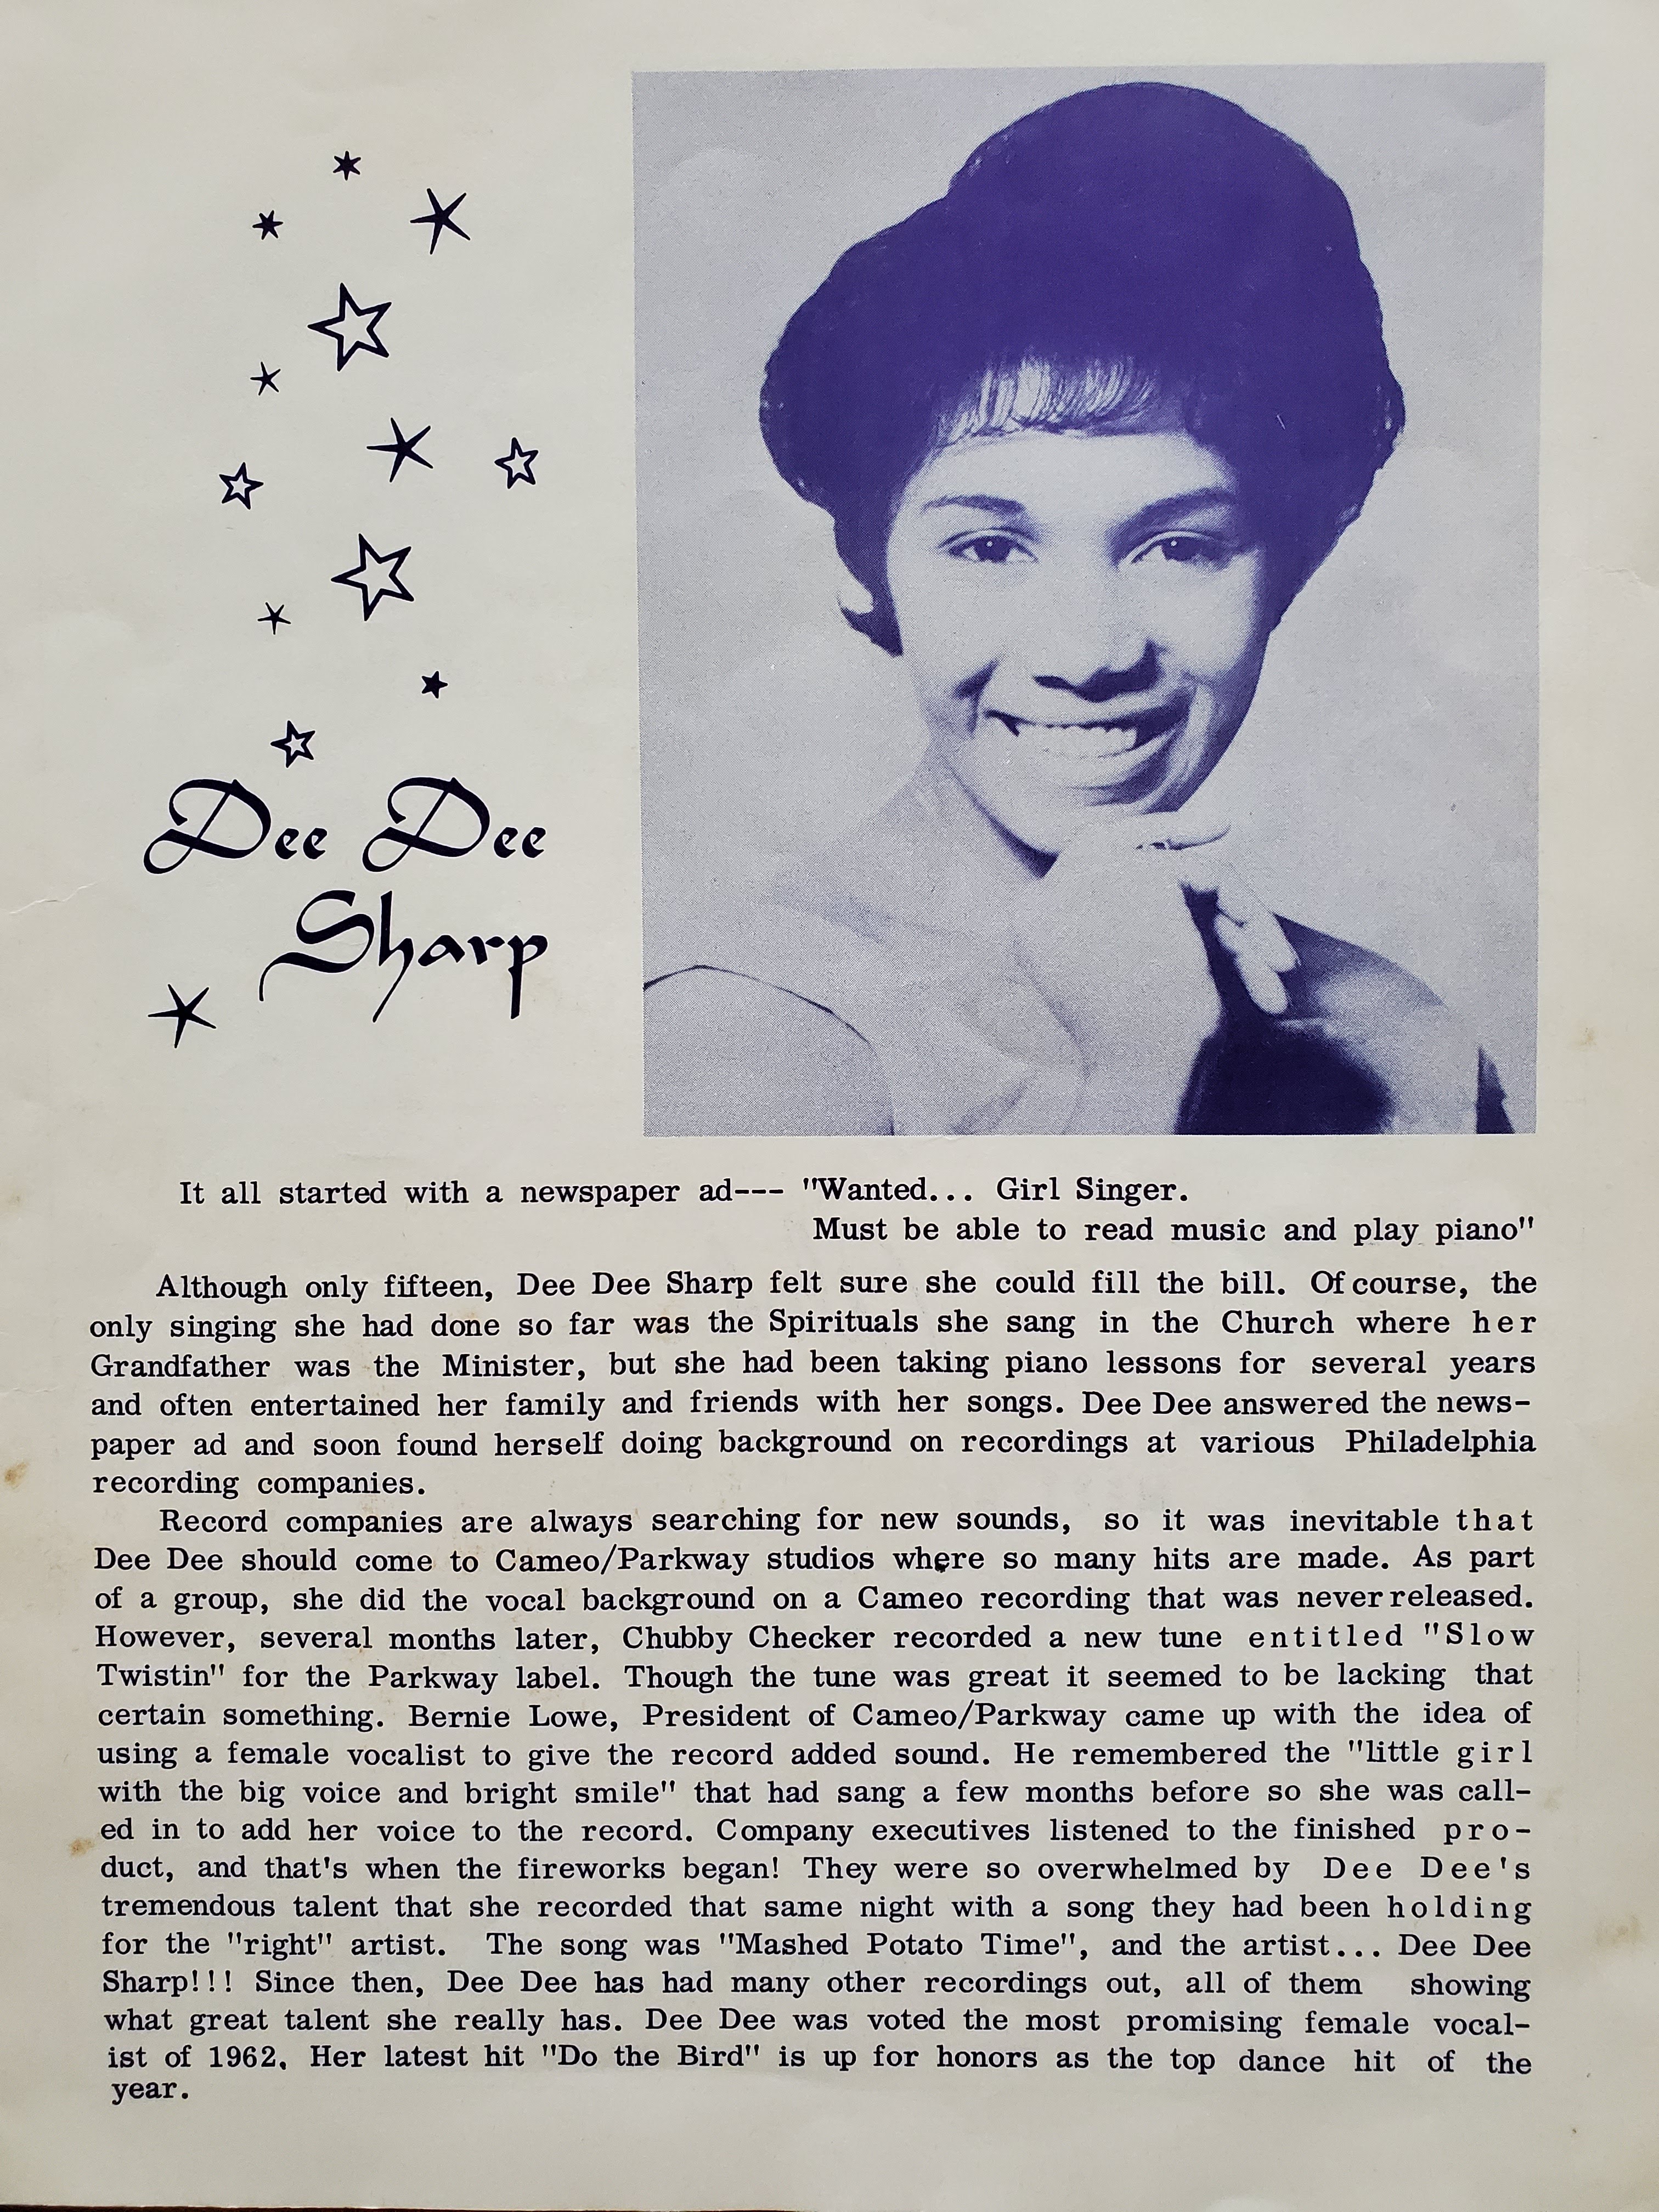 Dee Dee
Sharp
It all started with a newspaper ad--- "Wanted... Girl Singer.
Must be able to read music and play piano"
Although only fifteen, Dee Dee Sharp felt sure she could fill the bill. Of course, the
only singing she had done so far was the Spirituals she sang in the Church where her
Grandfather was the Minister, but she had been taking piano lessons for several years
and often entertained her family and friends with her songs. Dee Dee answered the news-
paper ad and soon found herself doing background on recordings at various Philadelphia
recording companies.
Record companies are always searching for new sounds, so it was inevitable that
Dee Dee should come to Cameo/Parkway studios where so many hits are made. As part
of a group, she did the vocal background on a Cameo recording that was never released.
However, several months later, Chubby Checker recorded a new tune entitled "Slow
Twistin" for the Parkway label. Though the tune was great it seemed to be lacking that
certain something. Bernie Lowe, President of Cameo/Parkway came up with the idea of
using a female vocalist to give the record added sound. He remembered the "little girl
with the big voice and bright smile" that had sang a few months before so she was call-
ed in to add her voice to the record. Company executives listened to the finished pro-
duct, and that's when the fireworks began! They were so overwhelmed by Dee Dee's
tremendous talent that she recorded that same night with a song they had been holding
for the "right" artist. The song was "Mashed Potato Time", and the artist... Dee Dee
Sharp!!! Since then, Dee Dee has had many other recordings out, all of them showing
what great talent she really has. Dee Dee was voted the most promising female vocal-
ist of 1962. Her latest hit "Do the Bird" is up for honors as the top dance hit of the
year.